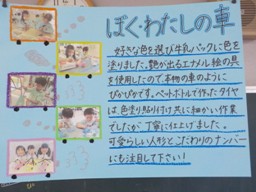 ぼく・わたしの車
好きな色を選び牛乳パックに色を
塗りました。艶が出るエナメル絵の具
を使用したので、本物の車のように
ぴかぴかです。ペットボトルで作ったタイヤ
は、色塗り貼り付け共に細かい作業
でしたが丁寧に仕上げました。
可愛らしい人形とこだわりのナンバー
にも注目して下さい!